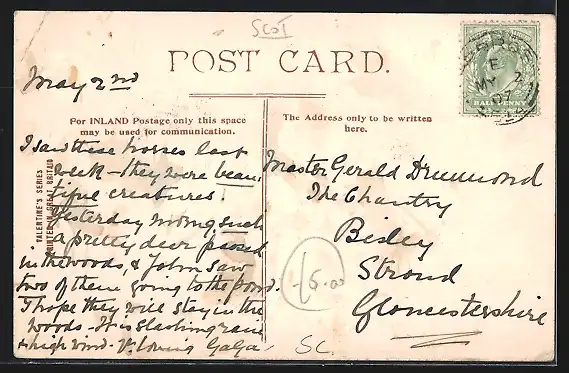 SCOT
POST CARD.
May 2nd
For INLAND Postage only this space
may be used for communication.
The Address only to be written
here.
HALFPENNY
E
MY 2
07
VALENTINE'S SERIES
PRINTED IN GREAT BRITAIN
I saw these horses last
week - they were beau
tiful creatures!
Yesterday mong such
a pretty deer passed
in the woods, & John saw
two of them going to the pond.
I hope they will stay in the
woods - It is slashing rain
& high wind - Yr loving GaGa -
Master Gerald Drummond
The Chantry
Bisley
Stroud
Gloucestershire
15.00
SC.